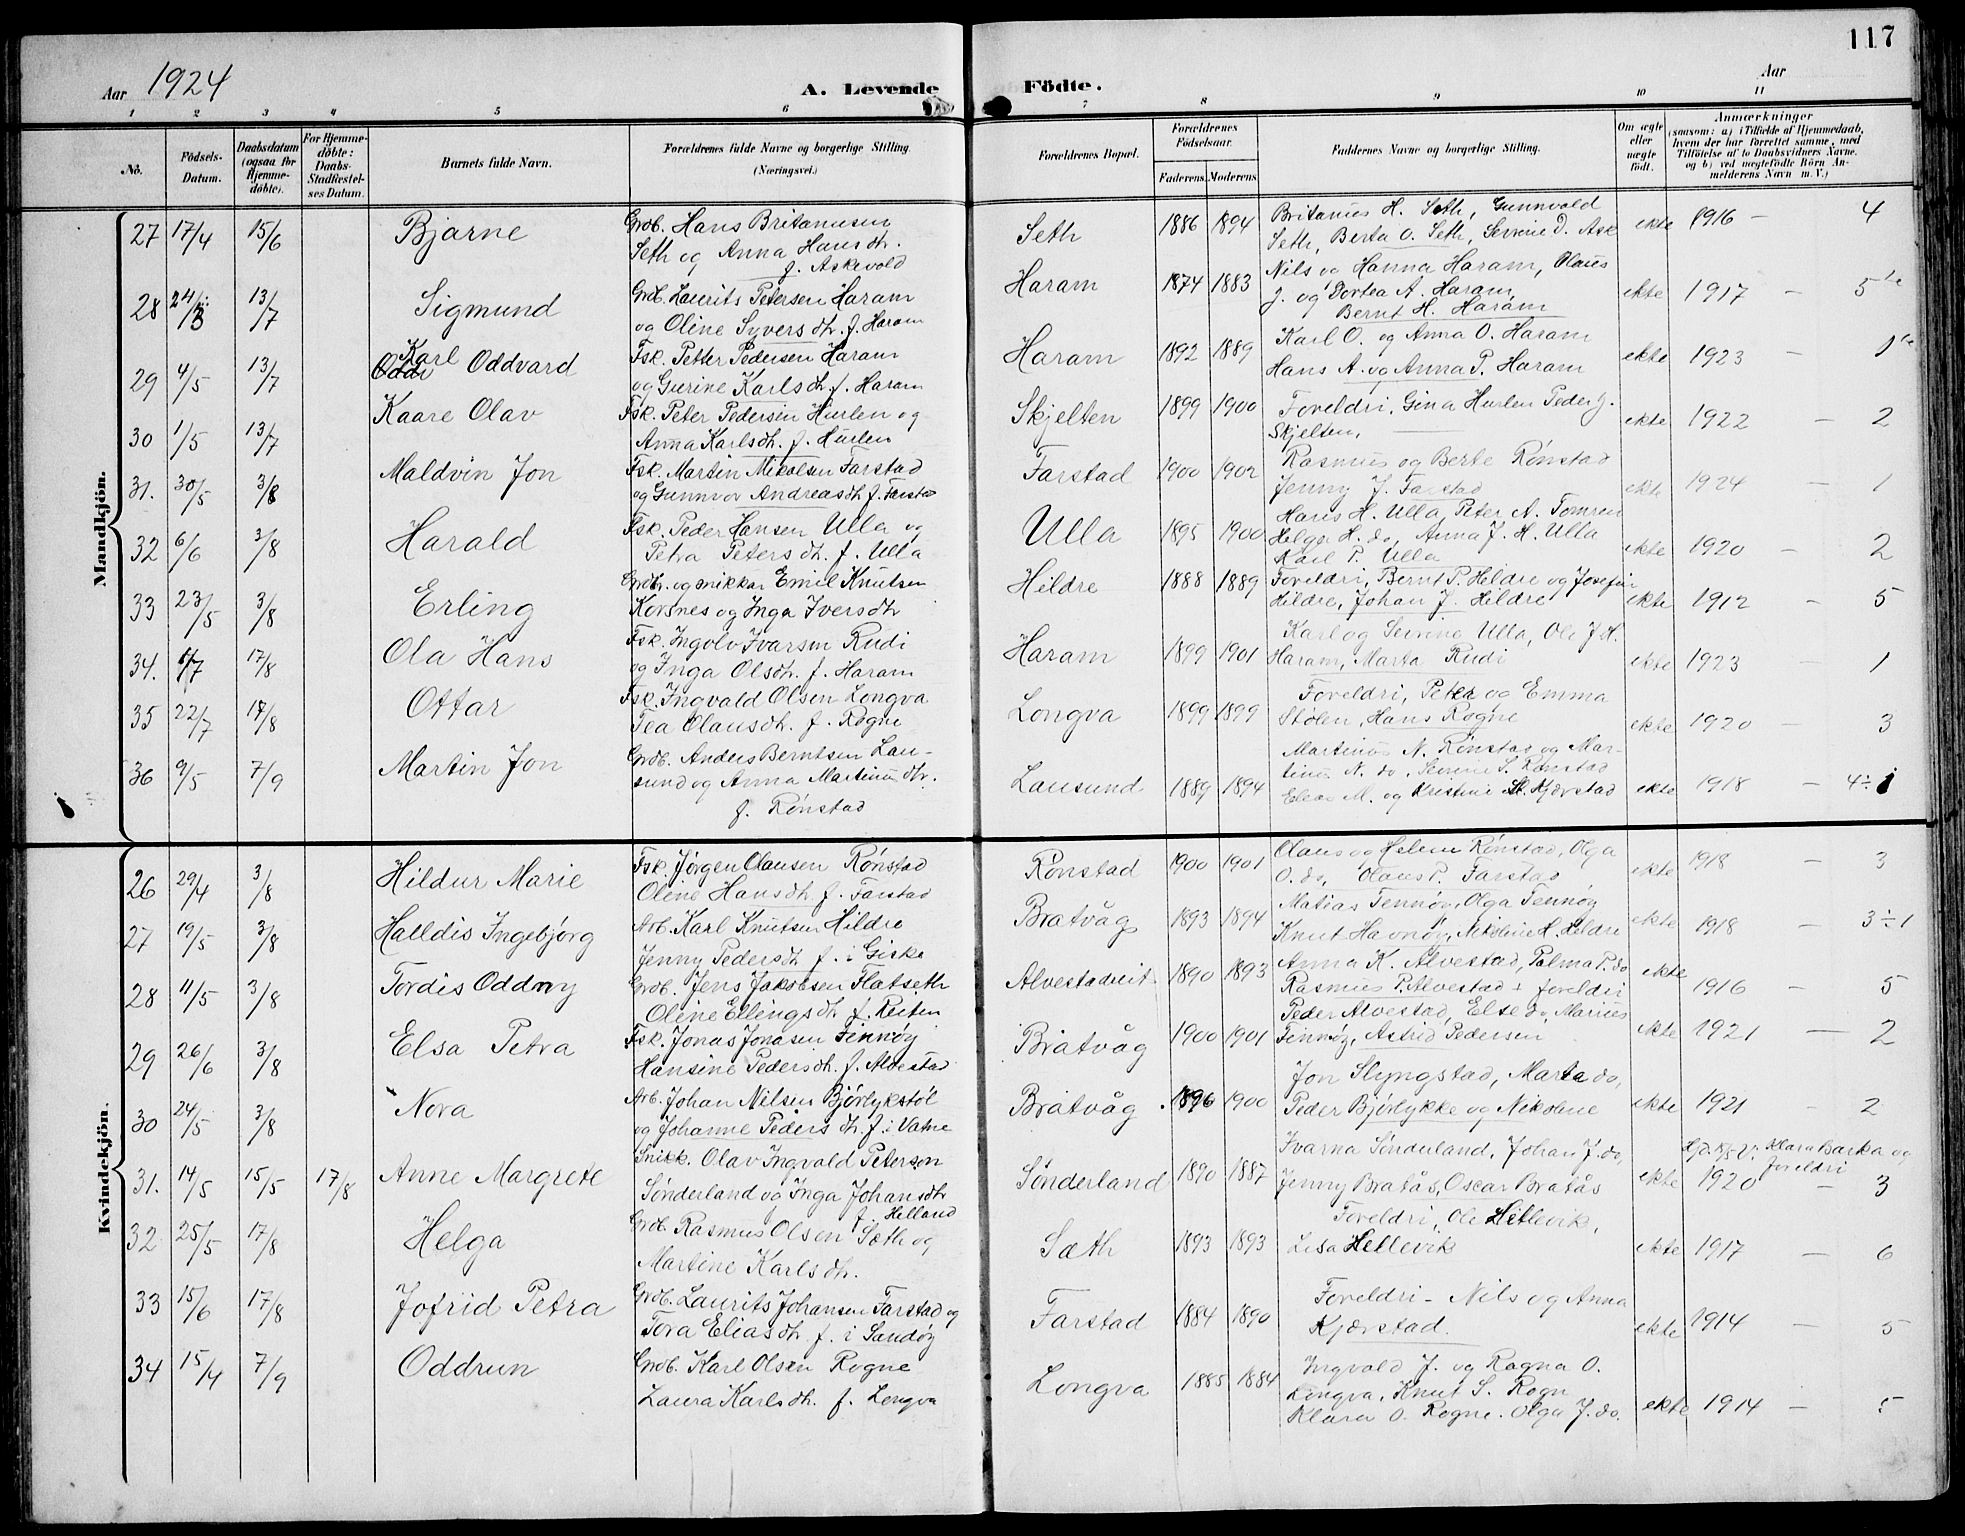 117
Aar 1924
A. Levende Födte.
Aar
1 2 3 4 5 6 7 8 9 10 11
No.
Födsels-
Datum.
Daabsdatum
(ogsaa for
Hjemme-
döbte).
For Hjemme-
döbte:
Daabs-
Stadfæstel-
ses Datum.
Barnets fulde Navn.
Forældrenes fulde Navne og borgerlige Stilling
(Næringsvei.)
Forældrenes Bopæl.
Forældrenes
Födselsaar.
Faderens. Moderens
Faddernes Navne og borgerlige Stilling.
Om ægte
eller
uægte
födt.
Anmærkninger
(saasom: a) i Tilfælde af Hjemmedaab,
hvem der har forrettet samme, med
Tilföielse af to Daabsvidners Navne,
og b) ved uægtefödte Börn An-
melderens Navn m. V.)
Mandkjön.
27 17/4 15/6 Bjarne
Grdb. Hans Britanusen
Seth og Anna Hansdtr.
f. Askevold
Seth 1886 1894
Britanus H. Seth, Gunnvald
Seth, Berta O. Seth, Serine D. Ask
ekte 1916 – 4
28 24/3 13/7 Sigmund
Grdb. Laurits Petersen Haram
og Oline Syversdtr. f. Haram
Haram 1874 1883
Nils og Hanna Haram, Olaus
J. og Dortea A. Haram
Bernt H. Haram
ekte 1917 – 5
29 4/5 13/7 Karl Oddvard
Fsk. Petter Pedersen Haram
og Gurine Karlsdtr. f. Haram
Haram 1892 1889
Karl O. og Anna O. Haram
Hans A. og Anna P. Haram
ekte 1923 – 1
30 1/5 13/7 Kaare Olav
Fsk. Peter Pedersen Hurlen og
Anna Karlsdtr. f. Hurlen
Skjelten 1899 1900
Foreldri, Gina Hurlen Peder J.
Skjelten,
ekte 1922 – 2
31. 30/5 3/8 Maldvin Jon
Fsk. Martin Mikalsen Farstad
og Gunnvor Andreasdtr f. Farstad
Farstad 1900 1902
Rasmus og Berte Rønstad
Jenny J. Farstad
ekte 1924 – 1
32 6/6 3/8 Harald
Fsk. Peder Hansen Ulla og
Petra Petersdtr. f. Ulla
Ulla 1895 1900
Hans H. Ulla, Peter A. Tomren
Helga H. do, Anna J. H. Ulla
Karl P. Ulla
ekte 1920 – 2
33 23/5 3/8 Erling
Grdb. og snikkar Emil Knutsen
Korsnes og Inga Iversdtr
Hildre 1888 1889
Foreldri, Bernt P. Hildre og Josefin
Hildre, Johan J. Hildre
ekte 1912 – 5
34. 1/7 17/8 Ola Hans
Fsk. Ingolv Ivarsen Rudi
og Inga Olsdtr. f. Haram
Haram 1899 1901
Karl og Serine Ulla, Ole J. H.
Haram, Marta Rudi
ekte 1923 – 1
35 22/7 17/8 Ottar
Fsk. Ingvald Olsen Longva
Tea Olausdtr. f. Rogne
Longva 1899 1899
Foreldri, Peter og Emma
Stølen, Hans Rogne
ekte 1920 – 3
36 9/5 7/9 Martin Jon
Grdb. Anders Berntsen Lau-
sund og Anna Martinusdtr.
f. Rønstad
Lausund 1889 1894
Martinus N. Rønstad og Mar-
tinus N. do, Serine S. Rønstad
Elias M. og Kristine M. Kjærstad
ekte 1918 – 4÷1
Kvindekjön.
26 29/4 3/8 Hildur Marie
Fsk. Jørgen Olausen Rønstad
Oline Hansdtr f. Farstad
Rønstad 1900 1901
Olaus og Helene Rønstad, Olga
O. do, Olaus P. Farstad
ekte 1918 – 3
27 19/5 3/8 Halldis Ingebjørg
Arb. Karl Knutsen Hildre
Jenny Pedersdtr f. i Giske
Bratvåg 1893 1894
Matias Tennøy, Olga Tennøy
Knut Havnøy, Nikoline H. Hildre
ekte 1918 – 3÷1
28 11/5 3/8 Tordis Oddny
Grdb. Jens Jakobsen Flatseth
Oline Ellingsdtr f. Reiten
Alvestadreit 1890 1893
Anna K. Alvestad, Palma P. do
Rasmus P. Alvestad + foreldri
ekte 1916 – 5
29 26/6 3/8 Elsa Petra
Fsk. Jonas Jonasen Finnøy
Hansine Pedersdtr. f. Alvestad
Bratvåg 1900 1901
Peder Alvestad, Else do, Marius
Finnøy, Astrid Pedersen
ekte 1921 – 2
30 24/5 3/8 Nora
Arb. Johan Nilsen Bjørlykstøl
og Johanne Pedersdtr. f. i Vatne
Bratvåg 1896 1900
Jon Slyngstad, Marta do,
Peder Bjørlykke og Nikoline
ekte 1921 – 2
31. 14/5 15/5 17/8 Anne Margrete
Snikk. Olav Ingvald Peterson
Sønderland og Inga Johansdtr
f. Helland
Sønderland 1890 1887
Ivarna Sønderland, Johan J. do,
Jenny Bratås, Oscar Bratås
ekte 1920 – 3
Klara Barka og
foreldri
32 25/5 17/8 Helga
Grdb. Rasmus Olsen Sæth og
Martine Karlsdtr.
Sæth 1893 1893
Foreldri, Ole Hellevik,
Lisa Hellevik
ekte 1917 – 6
33 15/6 17/8 Jofrid Petra
Grdb. Laurits Johansen Farstad og
Tora Eliasdtr f. i Sandøy
Farstad 1884 1890
Foreldri – Nils og Anna
Kjærstad.
ekte 1914 – 5
34 15/4 7/9 Oddrun
Grdb. Karl Olsen Rogne
Laura Karlsdtr. f. Longva
Longva 1885 1884
Ingvald J. og Ragna O.
Longva, Knut S. Rogn
Klara O. Rogne. Olga J. do.
ekte 1914 – 5